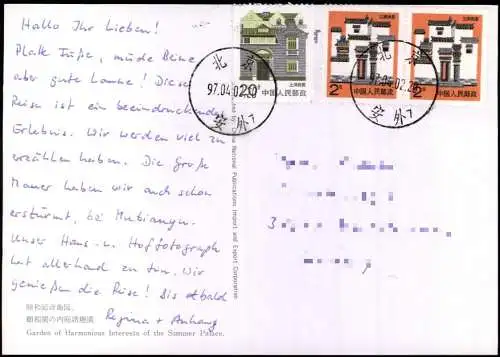 Hallo Ihr Lieben!
Platte Füße, müde Beine
aber gute Laune! Diese
Reise ist ein beeindruckendes
Erlebnis. Wir werden viel zu
erzählen haben. Die Große
Mauer haben wir auch schon
erstürmt, bei Mutianyu.
Unser Haus- u. Hoffotograph
hat allerhand zu tun. Wir
genießen die Reise! Bis bald
Regina + Anhang
颐和园谐趣园。
頤和園の内院諧趣園
Garden of Harmonious Interests of the Summer Palace.
National Publications Import and Export Corporation
上海民居
20分
中国人民邮政
上海民居
2分
中国人民邮政
上海民居
2分
中国人民邮政
北京
97.04.02.20
安外7
北京
97.04.02.20
安外7
3